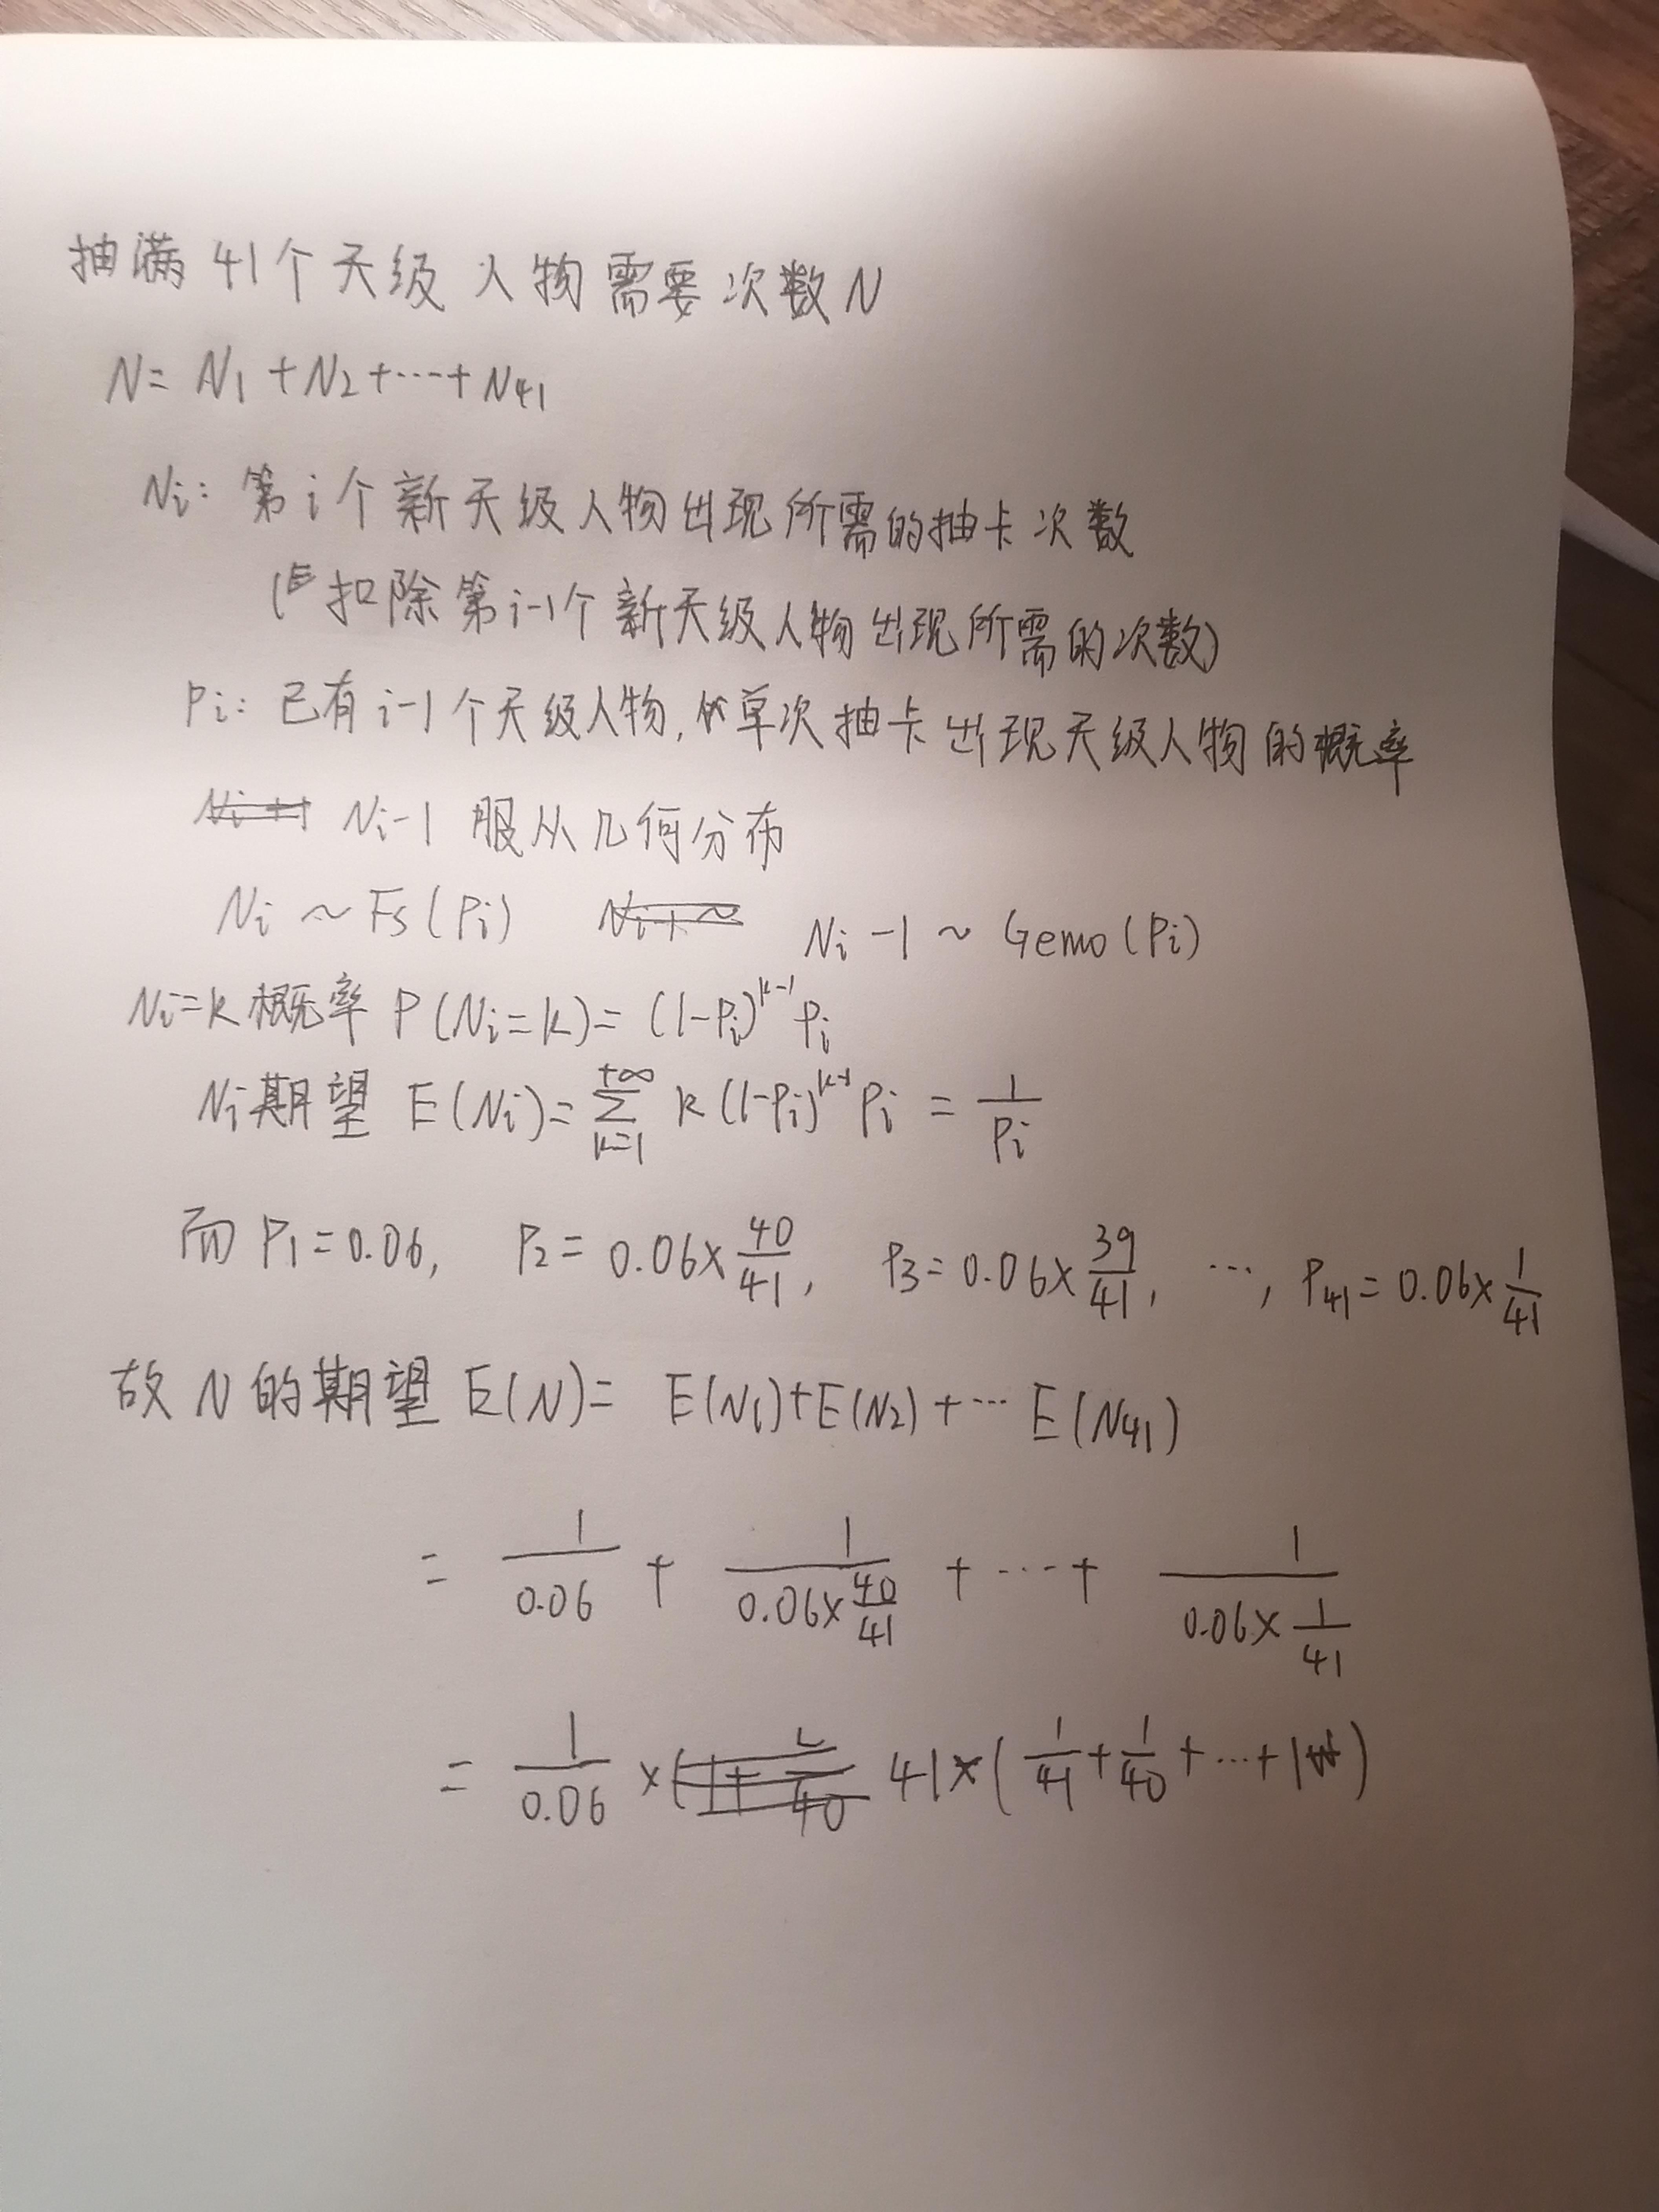 抽满41个天级人物需要次数N
N= N₁+N₂+…+N₄₁
Nᵢ: 第i个新天级人物出现所需的抽卡次数
(扣除第i-1个新天级人物出现所需的次数)
Pᵢ: 已有i-1个天级人物, 单次抽卡出现天级人物的概率
Nᵢ-1 服从几何分布
Nᵢ ~ Fs(Pᵢ) Nᵢ-1 ~ Gemo(Pᵢ)
Nᵢ=k概率 P(Nᵢ=k)= (1-Pᵢ)^{k-1} Pᵢ
Nᵢ期望 E(Nᵢ)= \sum_{k=1}^{+∞} k(1-Pᵢ)^{k-1} Pᵢ = \frac{1}{Pᵢ}
而 P₁=0.06, P₂= 0.06×\frac{40}{41}, P₃=0.06×\frac{39}{41}, …, P₄₁=0.06×\frac{1}{41}
故N的期望 E(N)= E(N₁)+E(N₂)+…E(N₄₁)
= \frac{1}{0.06} + \frac{1}{0.06×\frac{40}{41}} + …+ \frac{1}{0.06×\frac{1}{41}}
= \frac{1}{0.06} × 41×(\frac{1}{41}+\frac{1}{40}+…+1)